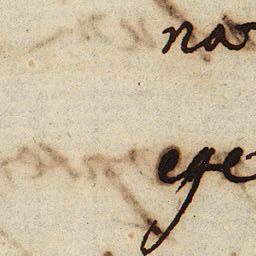 na
ege